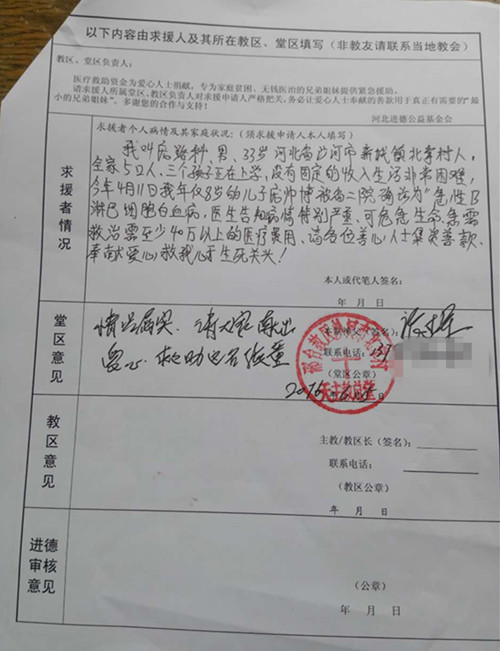 以下内容由求援人及其所在教区、堂区填写（非教友请联系当地教会）
教区、堂区负责人：
医疗救助资金为爱心人士捐献，专为家庭贫困、无钱医治的兄弟姐妹提供紧急援助。
请求援人所属堂区、教区负责人对求援申请人严格把关，务必让爱心人士奉献的善款用于真正有需要的“最
小的兄弟姐妹”。多谢您的合作与支持！
河北进德公益基金会
求援者情况
求援者个人病情及其家庭状况：（须求援申请人本人填写）
我叫 科、男、33岁 河北省沙河市新城镇北掌村人，
全家5口人、三个孩子正在上学，没有固定的收入生活非常困难，
今年4月11日我年仅8岁的儿子 帅博被省二院确诊为“急性B
淋巴细胞白血病，医生告知病情特别严重、可危急生命，急需
救治需至少40万以上的医疗费用、请各位善心人士集资善款、
奉献爱心救我儿于生死关头！
本人或代笔人签名：
年 月 日
堂区意见
情况属实、请大家献出
爱心、救助 患童
签名）：
联系电话：137
（堂区公章）
2016年 月 日
天主教总堂
教区意见
主教/教区长（签名）：
联系电话：
（教区公章）
年 月 日
进德审核意见
（公章）
年 月 日